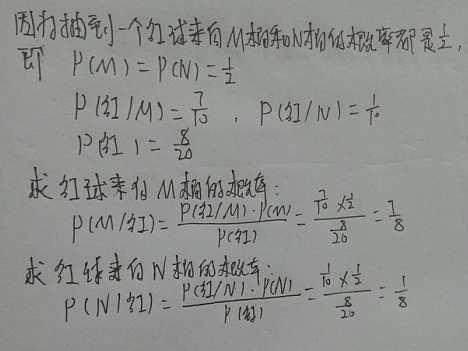 因为抽到一个红球来自M桶和N桶的概率都是1/2,
即 P(M)=P(N)=1/2
P(红/M)=7/10 , P(红/N)=1/10
P(红)=8/20
求红球来自M桶的概率:
P(M/红)=P(红/M)·P(M)/P(红)=(7/10×1/2)/(8/20)=7/8
求红球来自N桶的概率:
P(N|红)=P(红/N)·P(N)/P(红)=(1/10×1/2)/(8/20)=1/8